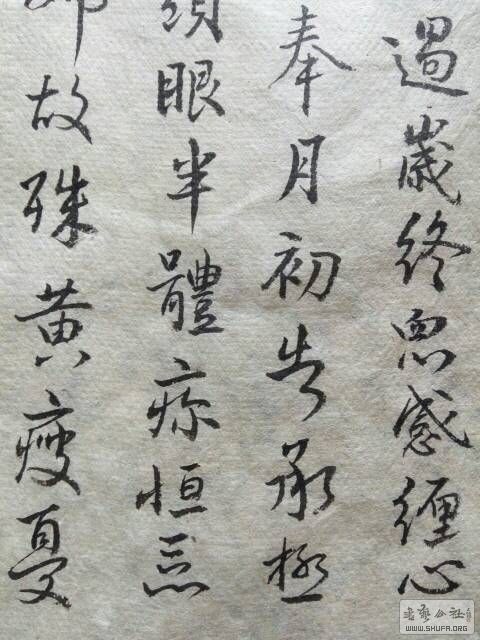 過歲終感纏心
奉月初告承極
眼半體疹恒惡
故殊黃瘦憂
書藝公社
WWW.SHUFA.ORG